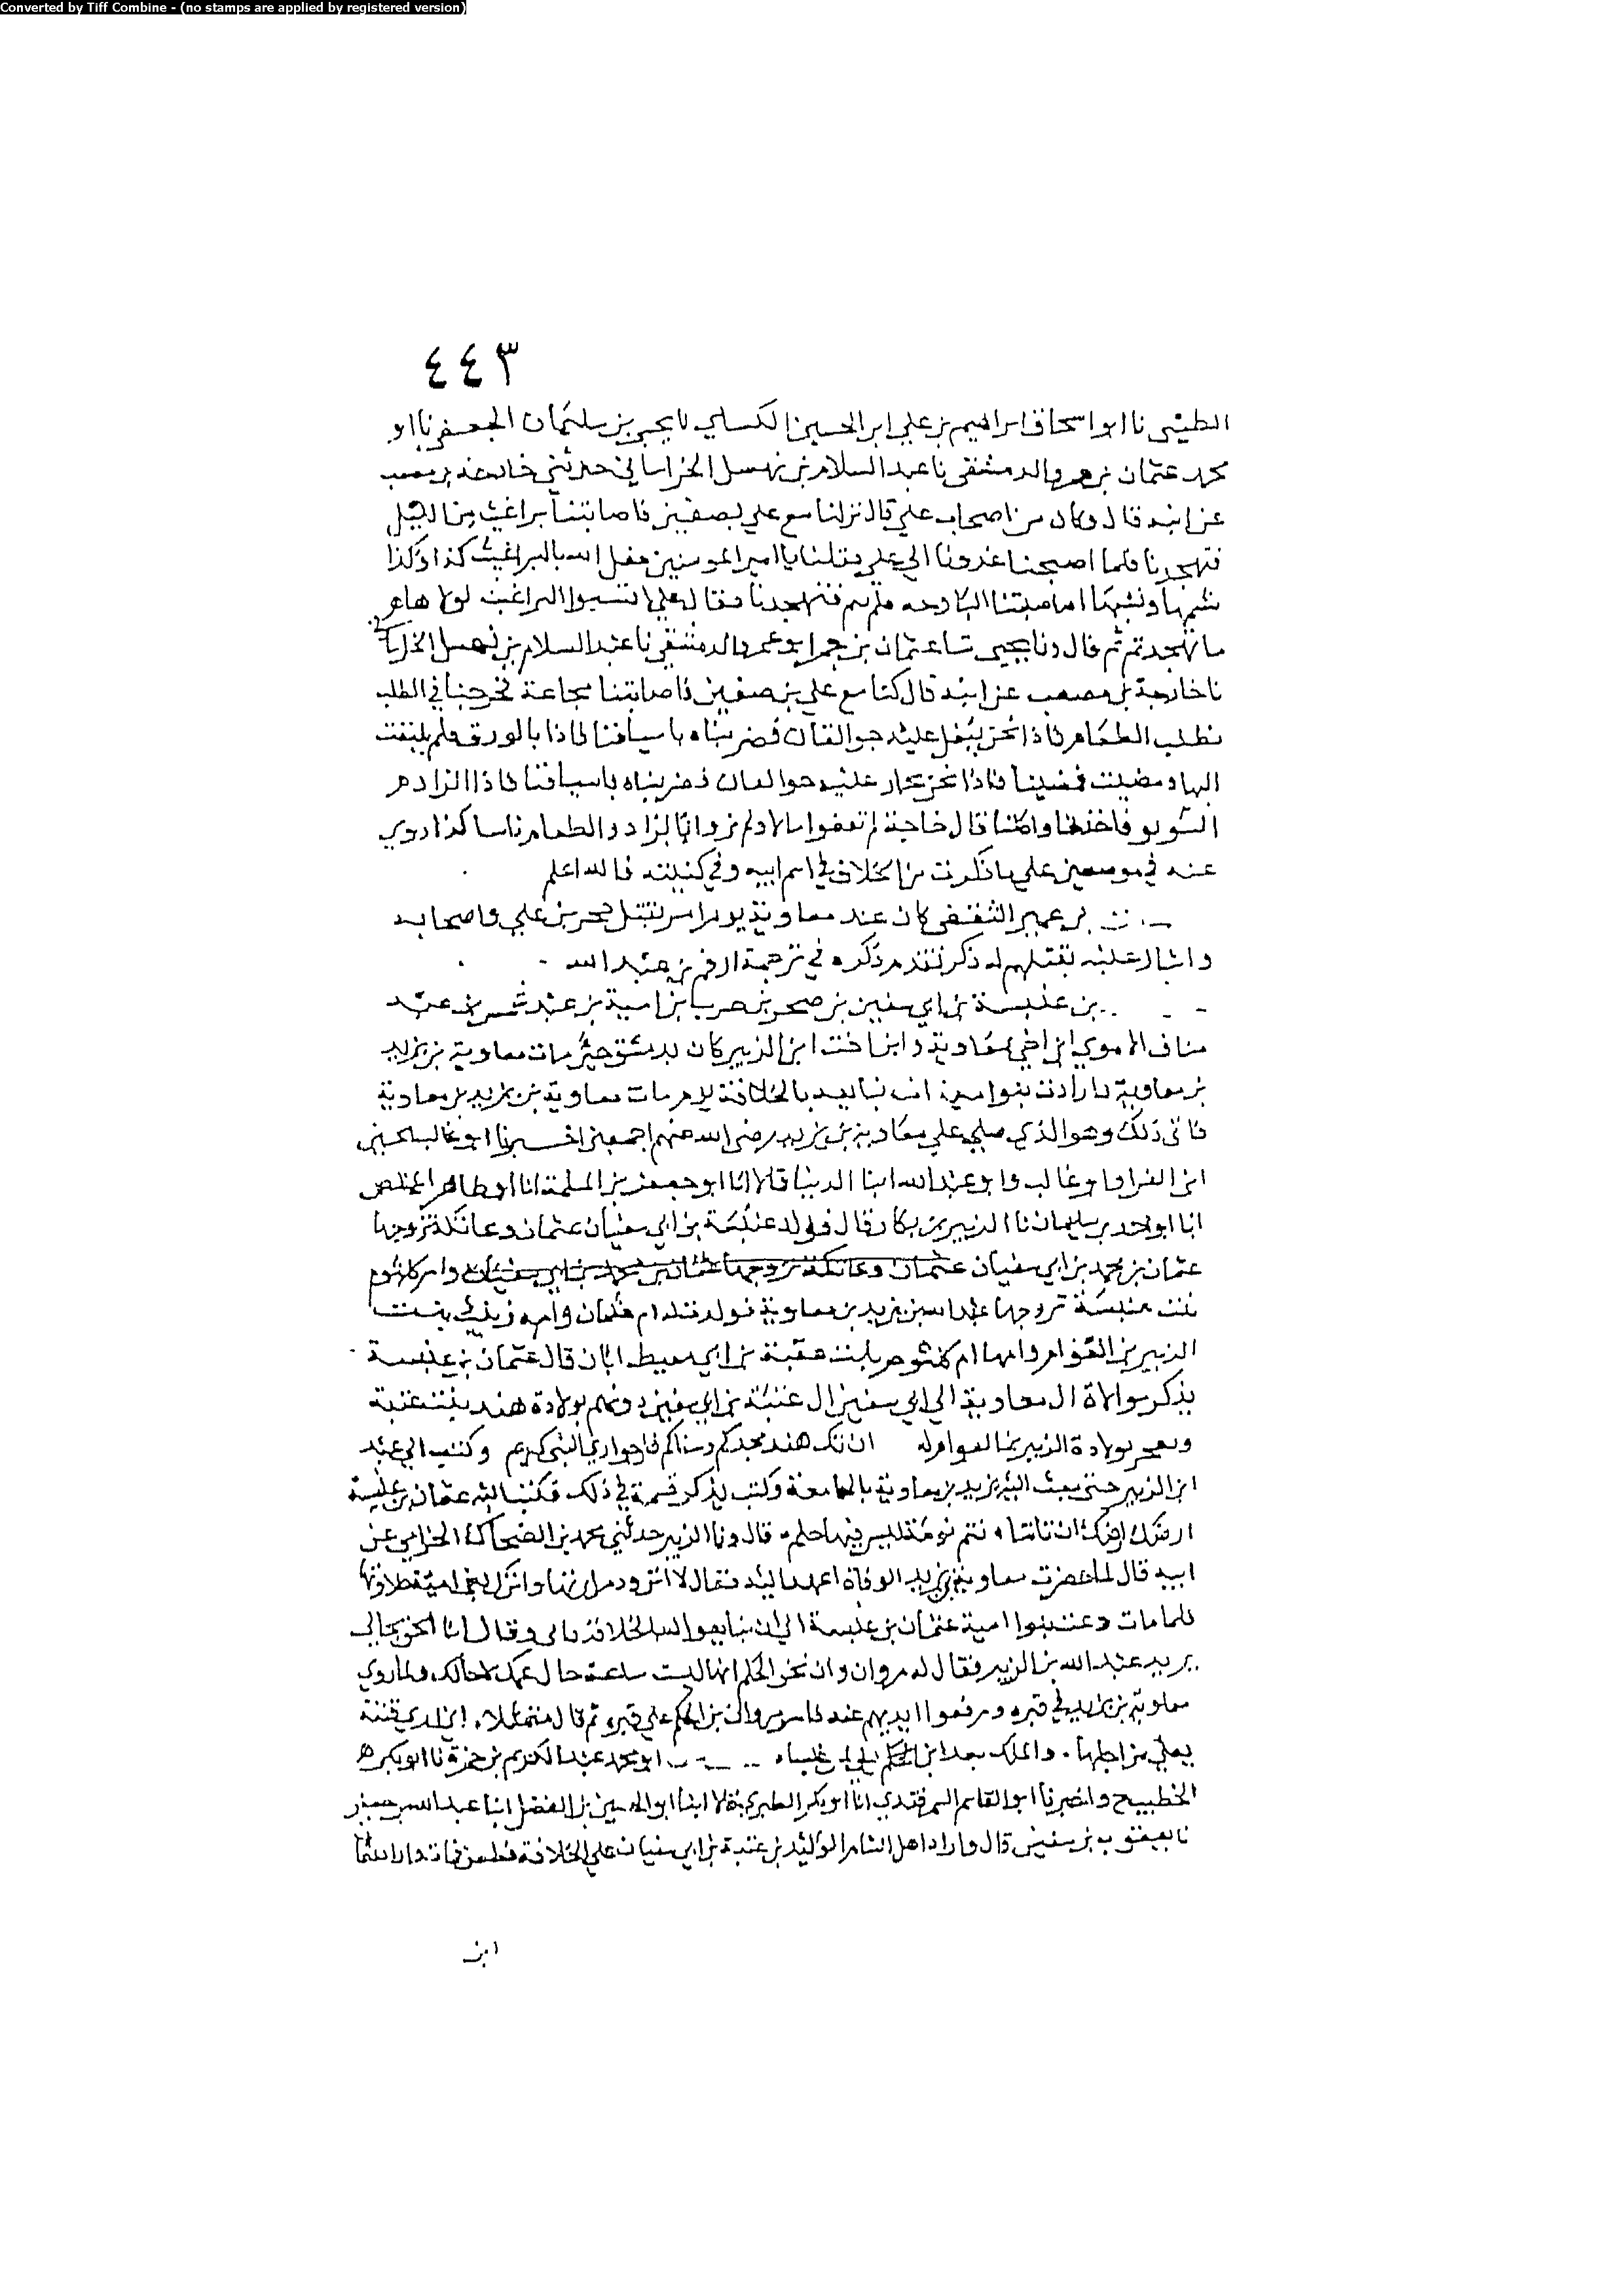 Converted by Tiff Combine - (no stamps are applied by registered version)
٤٤٣
الطيبي نا ابو اسحاق ابراهيم بن علي ابن الحسين الكسائي نا يحيى بن سليمان الجعفي نا ابو
محمد عثمان بن الدمشقي نا عبد السلام بن نهسل الخراساني حدثني خارجة بن مصعب
عن ابيه قال وكان من اصحاب علي قال نزلنا مع علي بصفين فاصابتنا براغيث من الليل
فتهجدنا فلما اصبحنا غدونا الى علي فقلنا يا امير المومنين فعل الله بالبراغيث كذا وكذا
نشتمها فتهجدنا فقال علي لا تسبوا البراغيث لولا هاهي
ما تهجدتم ثم قال ونا يحيى نا عثمان بن ابو عمرو الدمشقي نا عبد السلام بن نهسل
نا خارجة بن مصعب عن ابيه قال كنا مع علي بن صفين فاصابتنا مجاعة فخرجنا في الطلب
نطلب الطعام فاذا نحن ببغل عليه جوالقان فضربناه باسيافنا فاذا بالورق فلم يلتفت
اليها ومضيت فمضينا فاذا نحن بحمار عليه جوالقان فضربناه باسيافنا فاذا الزاد
السويق فاخذنا واكلنا قال خارجة والطعام كذا روي
عنه في موضعين على ما ذكرت من الخلاف في اسم ابيه وفي كنيته فالله اعلم
بن عمير الثقفي كان عند معاوية يوم امر بقتل حجر بن علي واصحابه
واشار عليه بقتلهم له ذكر تقدم ذكره في ترجمة ارقم بن عبد الله
بن عنبسة بن ابي سفين بن صخر بن حرب بن امية بن عبد شمس بن عبد
مناف الاموي ابن اخي معاوية وابن اخت ابن الزبير كان بدمشق حين مات معاوية بن يزيد
بن معاوية وارادت بنوا امية ان نبايعه بالخلافة يوم مات معاوية بن يزيد بن معاوية
فابى ذلك وهو الذي صلى على معاوية بن يزيد رضي الله عنهم اجمعين اخبرنا ابو غالب
ابن الفرا وابو غالب وابو عبد الله ابنا البنا قالا انا ابو جعفر بن المسلمة انا ابو طاهر المخلص
انا احمد بن سليمان نا الزبير بن بكار قال فولد عنبسة بن ابي سفيان عثمان وعاتكة تزوجها
عثمان بن محمد بن ابي سفيان عثمان وعاتكة تزوجها عثمان بن محمد بن ابي سفيان وام كلثوم
بنت عنبسة تزوجها عبد الله بن يزيد بن معاوية فولدت له ام عثمان وامهم زينب بنت
الزبير بن العوام وامها ام كلثوم بنت عقبة بن ابي معيط ابان قال عثمان بن عنبسة
يذكر موالاة ال معاوية الى ابي سفين ال عنبسة بن ابي سفين دونهم بولادة هند بنت عتبة
بولادة الزبير بن العوام له ان تك هند مجدكم وسناكم فان حواري النبي كريم وكتب الى عبد
ابن الزبير حتى بعث اليه يزيد بن معاوية بالجامعة وكتب يذكر قسمه في ذلك فكتب اليه عثمان بن عنبسة
تنم نومة ليس فيها حلم قال ونا الزبير حدثني محمد بن الضحاك الحزامي عن
ابيه قال لما حضرت معاوية بن يزيد الوفاة فقال لا اتزود مرارتها واترك لبني امية حلاوتها
فلما مات دعت بنوا امية عثمان بن عنبسة الى ان يبايعوا له الخلافة فابى وقال انا الحق بخالي
يريد عبد الله بن الزبير فقال له مروان وان نحن الحكم انها ليست ساعة خال عمك لا خالك ولما روي
معاوية بن يزيد في قبره ورفعوا ايديهم عنه قام مروان بن الحكم على قبره ثم قال متمثلا اني ارى فتنة
يغلي مراجلها والملك بعد ابن ليلى لمن غلبا ابو محمد عبد الكريم بن حمزة نا ابو بكر
الخطيب ح واخبرنا ابو القاسم السمرقندي انا ابو بكر الطبري قالا ابنا ابو الحسين بن الفضل ابنا عبد الله بن جعفر
نا يعقوب بن سفين قال واراد اهل الشام الوليد بن عتبة بن ابي سفيان على الخلافة فطعن فمات وارادوا
ابن